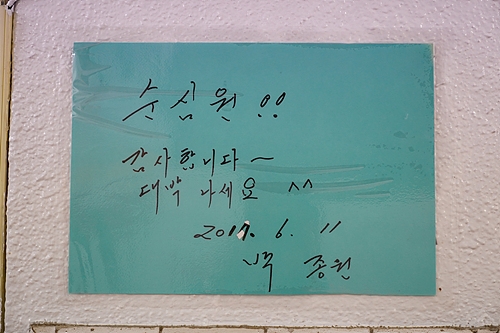 순심원 !!
감사합니다~
대박 나세요 ^^
2017. 6. 11
백종원